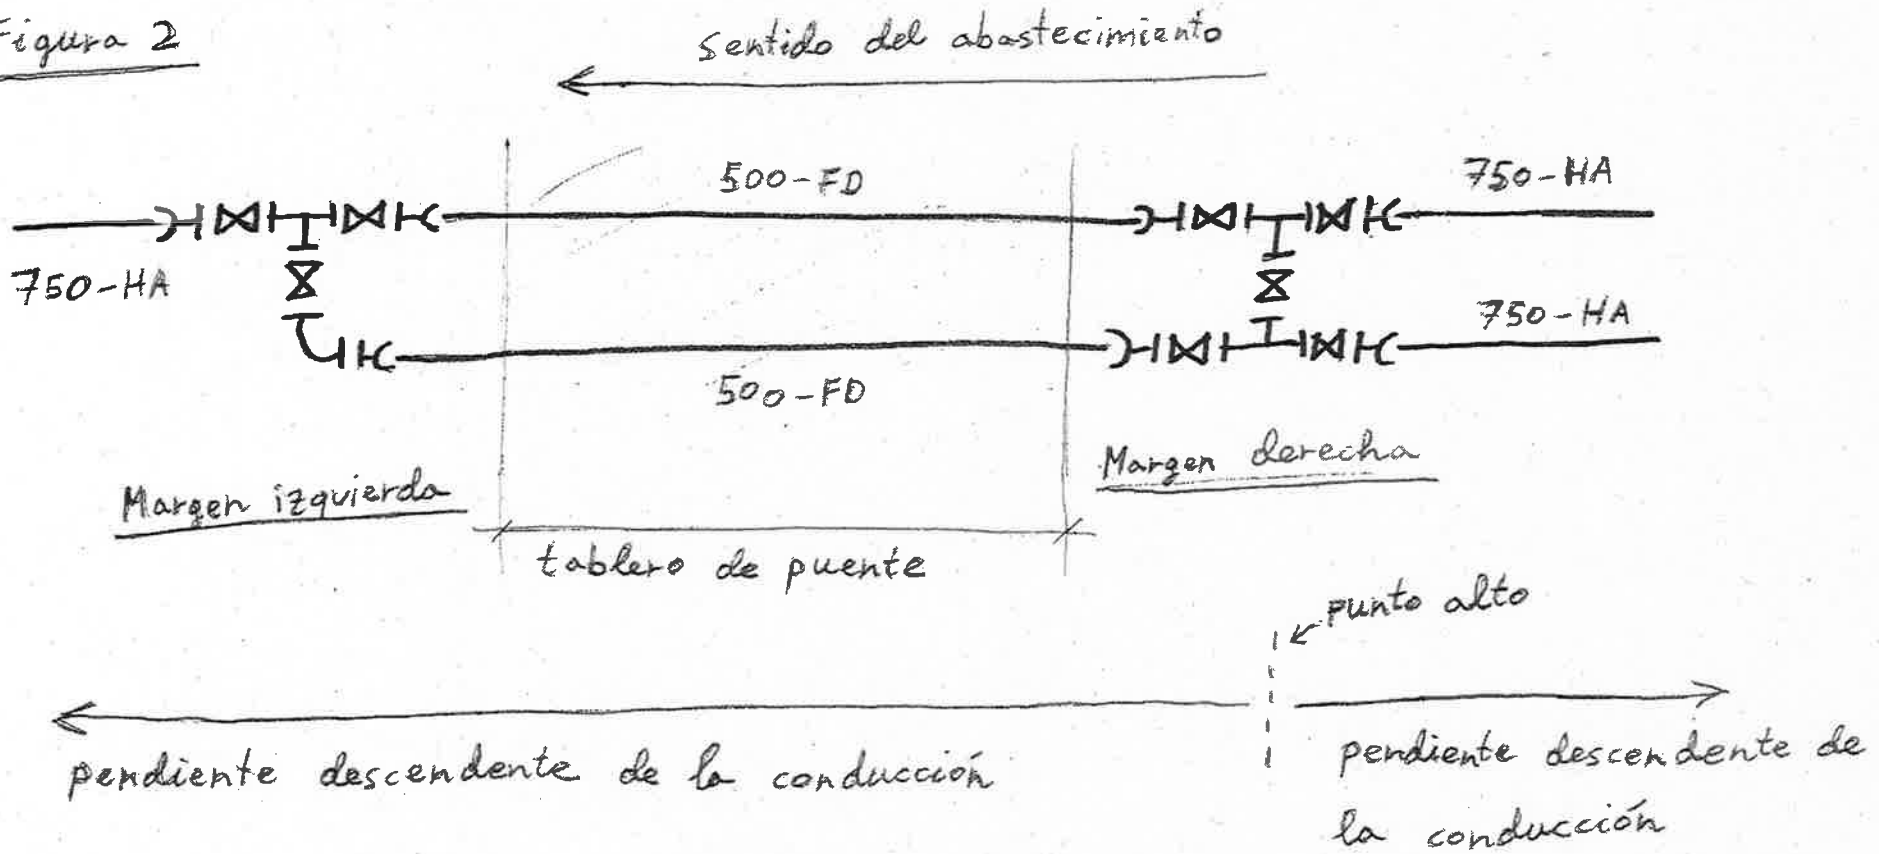 Figura 2
sentido del abastecimiento
500-FD
750-HA
750-HA
750-HA
500-FD
Margen derecha
Margen izquierda
tablero de puente
punto alto
pendiente descendente de la conducción
pendiente descendente de
la conducción